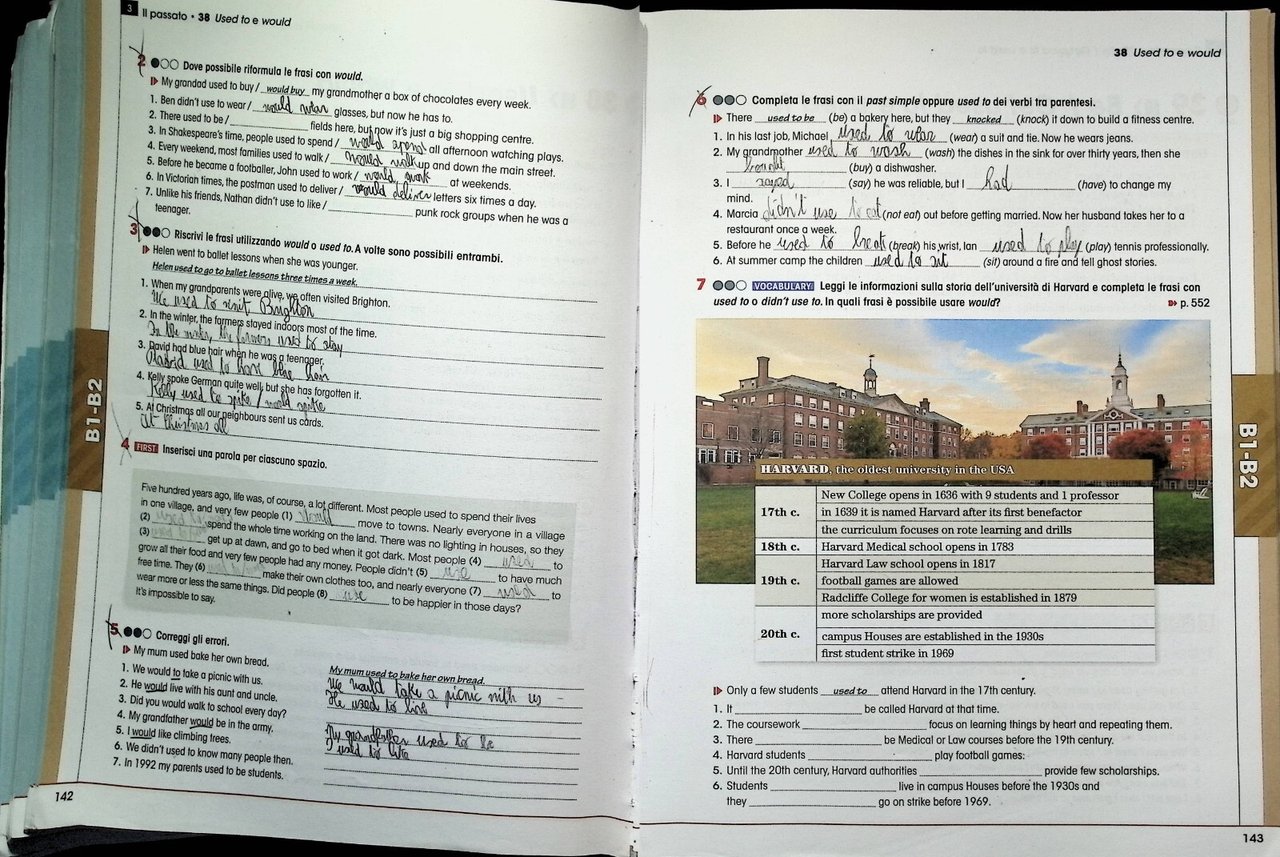 3 Il passato • 38 Used to e would
2 Dove possibile riformula le frasi con would.
My grandad used to buy / would buy my grandmother a box of chocolates every week.
1. Ben didn't use to wear / would wear glasses, but now he has to.
2. There used to be / fields here, but now it's just a big shopping centre.
3. In Shakespeare's time, people used to spend / would spend all afternoon watching plays.
4. Every weekend, most families used to walk / would walk up and down the main street.
5. Before he became a footballer, John used to work / would work at weekends.
6. In Victorian times, the postman used to deliver / would deliver letters six times a day.
7. Unlike his friends, Nathan didn't use to like / punk rock groups when he was a
teenager.
3 Riscrivi le frasi utilizzando would o used to. A volte sono possibili entrambi.
Helen went to ballet lessons when she was younger.
Helen used to go to ballet lessons three times a week.
1. When my grandparents were alive, we often visited Brighton.
We used to visit Brighton
2. In the winter, the farmers stayed indoors most of the time.
In the winter, the farmers used to stay
3. David had blue hair when he was a teenager.
used to have blue hair
4. Kelly spoke German quite well, but she has forgotten it.
Kelly used to spike / would spike
5. At Christmas all our neighbours sent us cards.
At Christmas all
4 FIRST Inserisci una parola per ciascuno spazio.
Five hundred years ago, life was, of course, a lot different. Most people used to spend their lives
in one village, and very few people (1) would move to towns. Nearly everyone in a village
(2) spend the whole time working on the land. There was no lighting in houses, so they
(3) get up at dawn, and go to bed when it got dark. Most people (4) used to
grow all their food and very few people had any money. People didn't (5) use to have much
free time. They (6) make their own clothes too, and nearly everyone (7) used to
wear more or less the same things. Did people (8) use to be happier in those days?
It's impossible to say.
5 Correggi gli errori.
My mum used bake her own bread. My mum used to bake her own bread.
1. We would to take a picnic with us. We would take a picnic with us
2. He would live with his aunt and uncle. He used to live
3. Did you would walk to school every day?
4. My grandfather would be in the army. My grandfather used to be
5. I would like climbing trees. I used to like
6. We didn't used to know many people then.
7. In 1992 my parents used to be students.
142
B1-B2
38 Used to e would
6 Completa le frasi con il past simple oppure used to dei verbi tra parentesi.
There used to be (be) a bakery here, but they knocked (knock) it down to build a fitness centre.
1. In his last job, Michael used to wear (wear) a suit and tie. Now he wears jeans.
2. My grandmother used to wash (wash) the dishes in the sink for over thirty years, then she
bought (buy) a dishwasher.
3. I sayed (say) he was reliable, but I had (have) to change my
mind.
4. Marcia didn't use to eat (not eat) out before getting married. Now her husband takes her to a
restaurant once a week.
5. Before he used to break (break) his wrist, Ian used to play (play) tennis professionally.
6. At summer camp the children used to sit (sit) around a fire and tell ghost stories.
7 VOCABULARY Leggi le informazioni sulla storia dell'università di Harvard e completa le frasi con
used to o didn't use to. In quali frasi è possibile usare would? p. 552
HARVARD, the oldest university in the USA
New College opens in 1636 with 9 students and 1 professor
17th c. in 1639 it is named Harvard after its first benefactor
the curriculum focuses on rote learning and drills
18th c. Harvard Medical school opens in 1783
Harvard Law school opens in 1817
19th c. football games are allowed
Radcliffe College for women is established in 1879
more scholarships are provided
20th c. campus Houses are established in the 1930s
first student strike in 1969
Only a few students used to attend Harvard in the 17th century.
1. It be called Harvard at that time.
2. The coursework focus on learning things by heart and repeating them.
3. There be Medical or Law courses before the 19th century.
4. Harvard students play football games:
5. Until the 20th century, Harvard authorities provide few scholarships.
6. Students live in campus Houses before the 1930s and
they go on strike before 1969.
143
B1-B2